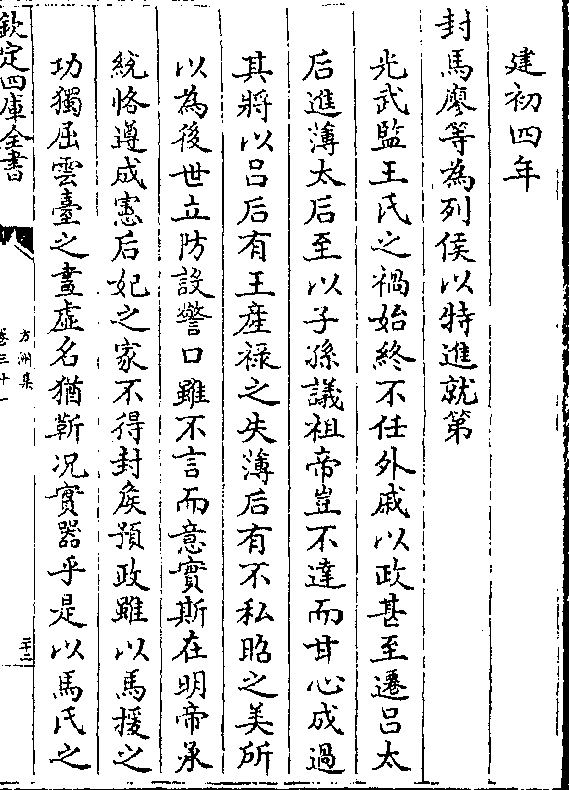 建初四年
封馬廖等為列侯以特進就第
光武監王氏之禍始終不任外戚以政甚至遷吕太
后進薄太后至以子孫議祖帝豈不達而甘心成過
其將以吕后有王産禄之失薄后有不私昭之美所
以為後世立防設警口雖不言而意實斯在明帝承
統恪遵成憲后妃之家不得封侯預政雖以馬援之
功獨屈雲臺之畫虛名猶靳况實器乎是以馬氏之
欽定四庫全書
方洲集
卷三十一
二十二